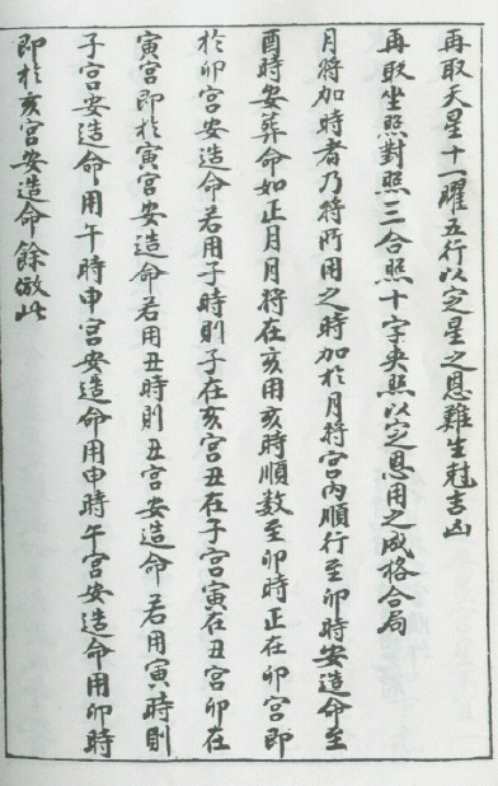 再取天星十一曜五行以定星之恩難生尅吉凶
再取坐照對照三合照十字夾照以定恩用之成格合局
月將加時者乃符所用之時加於月將宮內順行至卯時安造命至
酉時安葬命如正月月將在亥用亥時順数至卯時正在卯宮即
於卯宮安造命若用子時則子在亥宮丑在子宮寅在丑宮卯在
寅宮即於寅宮安造命若用丑時則丑宮安造命若用寅時則
子宮安造命用午時申宮安造命用申時午宮安造命用卯時
即於亥宮安造命餘倣此